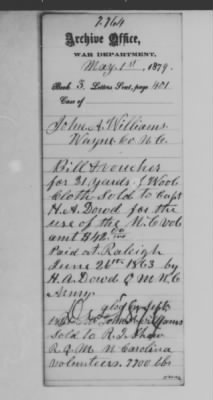 2764
Archive Office,
WAR DEPARTMENT,
May 1st, 1879.
Book 3, Letters Sent, page 401.
Case of
John A. Williams
Wayne Co N.C.
Bill & voucher
for 31 yards of Wool
Cloth Sold to Capt
H.A. Dowd for the
use of the N.C. Vols
amt $42.
Paid at Raleigh
June 26th 1863 by
H.A. Dowd Q M N.C.
Army.
Sold to R.T.
R Q M N Carolina
Volunteers. 7700 lbs